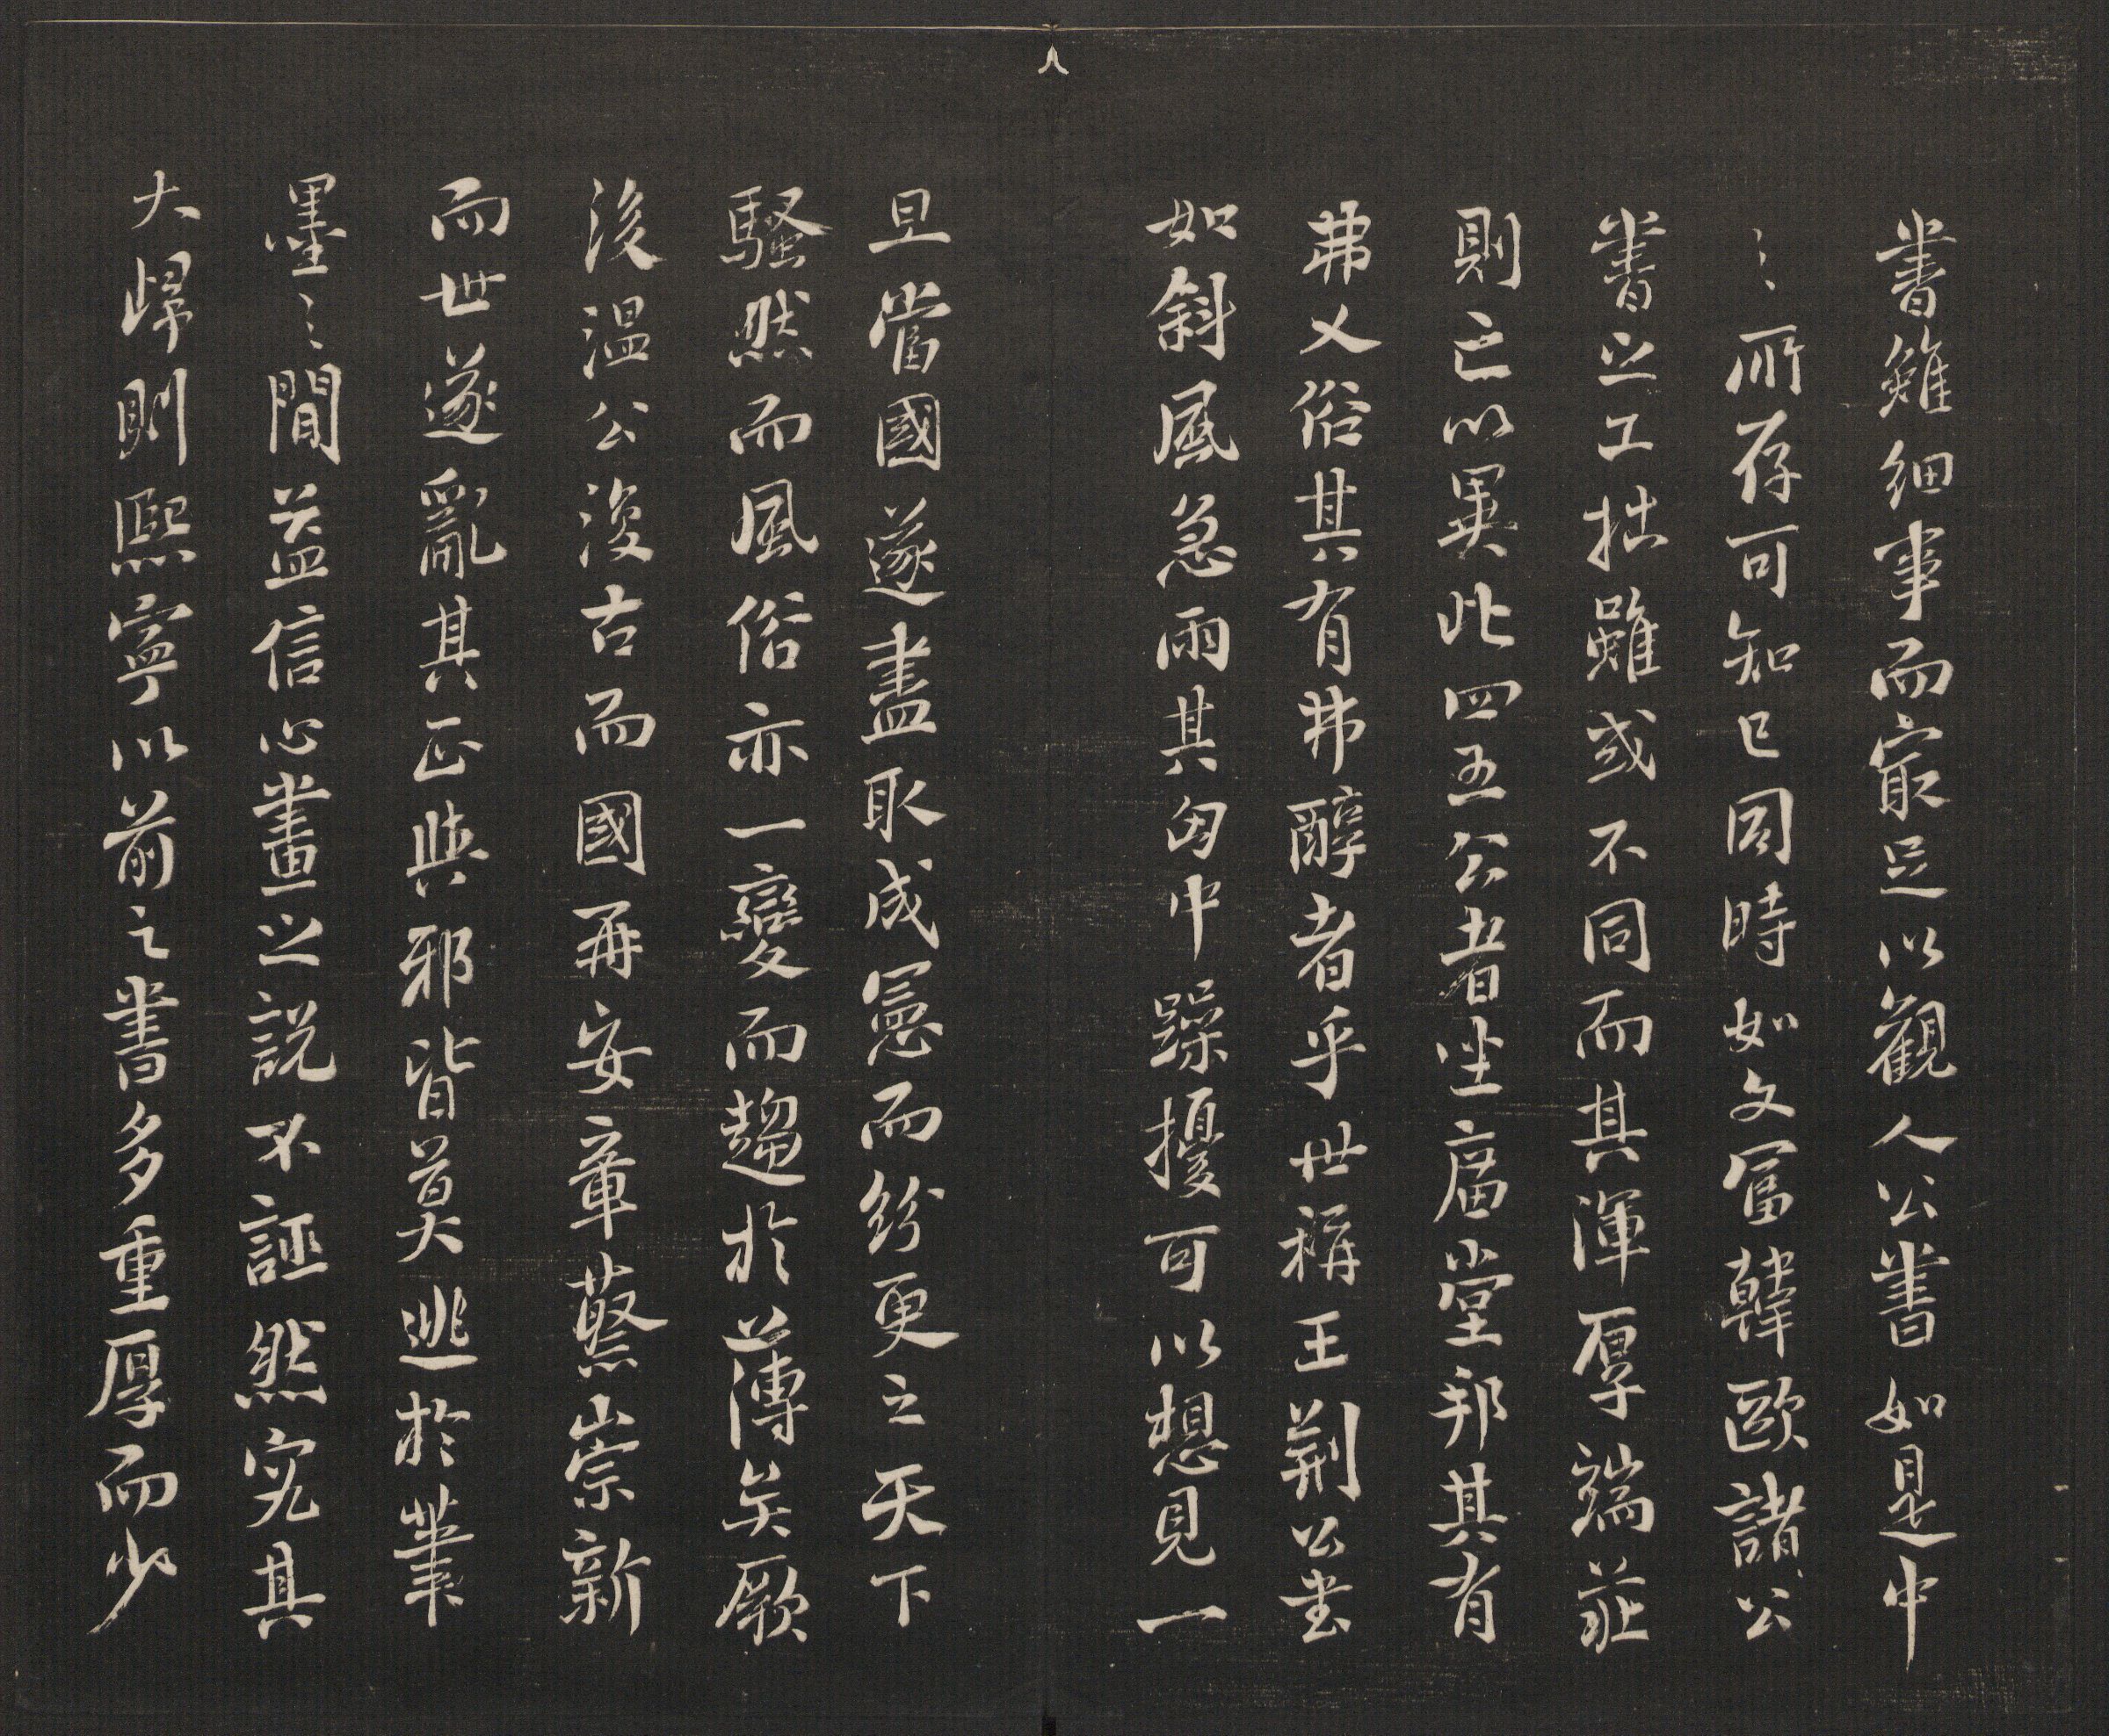 書雖細事而寂足以觀人公書如是中
〻所存可知已同時如文富韓歐諸公
書之工拙雖或不同而其渾厚端莊
則亡以異此四五公者坐廟堂邦其有
弗乂俗其有弗醇者乎世稱王荆公書
如斜風急雨其匈中躁擾可以想見一
旦當國遂盡取成憲而紛更之天下
騷然而風俗亦一變而趨於薄矣厥
後溫公復古而國再安章蔡崇新
而世遂亂其正與邪皆莫逃於筆
墨〻間益信心畫之説不誣然究其
大歸則熙寧以前之書多重厚而少